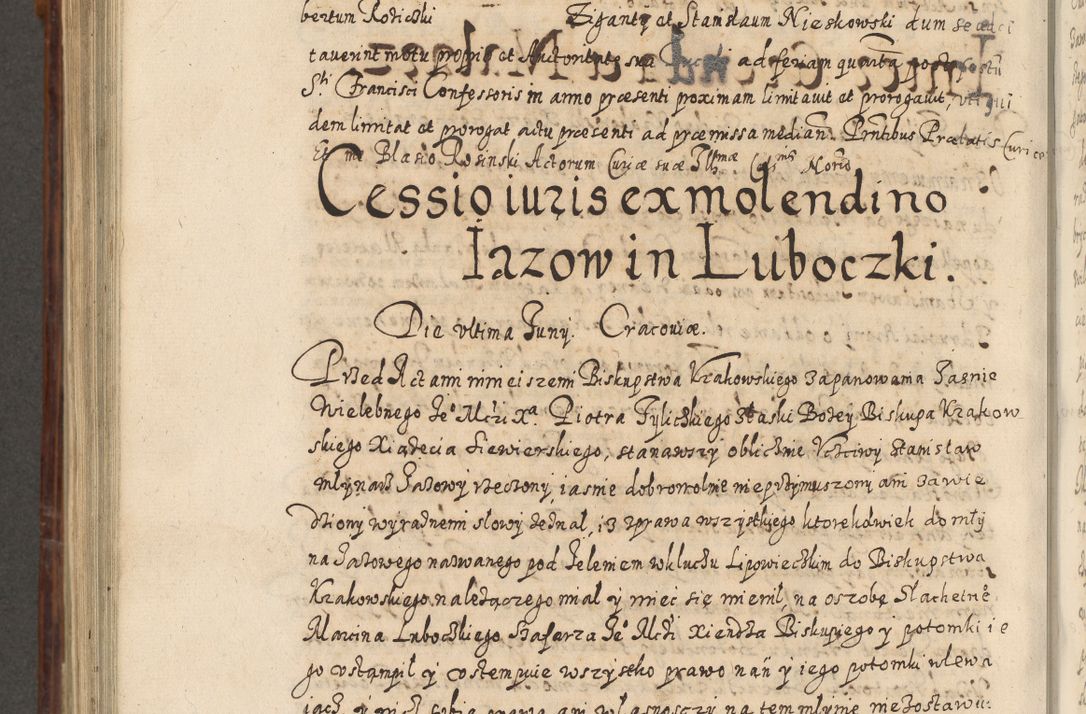 bertum Rosiczki Zigantę et Stanislaum Nieskowski dum se
tauerint motu proprio et Authoritate sua ad feriam quantā post
Sti Francisci Confessoris in anno præsenti proximam limitauit et prorogauit, uti qui
dem limitat et prorogat actu præsenti ad præmissa mediañ. Prñtibus Prælatis Curiæ
Et me Blasio Rosinski Actorum Curiæ suæ Illmæ Norio
Cessio iuris ex molendino
Iazow in Luboczki.
Die vltima Juny. Cracoviæ.
Przed Actami ninieiszemi Biskupstwa Krakowskiego za panowania Jasnie
Wielebnego Jeo Młći Xa. Piotra Tyliczkiego z łaski Bożey Biskupa Krakow
skiego Xiążęcia Siewierskiego, stanąwszy oblicznie Vczciwy Stanisław
młynarz Jazowy rzeczony, iasnie dobrowolnie nieprzymuszony ani zawie
dziony wyraznemi słowy zeznał, iż z prawa wszystkiego ktorekolwiek do mły
na Jazowego nazwanego pod Jeleniem w kluczu Lipowieczkim do Biskupstwa
Krakowskiego należączego miał y mieć się mienił, na oszobę Slachetneo
Marcina Luboczkiego Szafarza Jeo Młći Xiendza Biskupiego y potomki ie
go vstąmpił y vstempuie wszystko prawo nań y iego potomki wlewa
iącz y nicz sobie prawa ani własnosczy na tem młynie nie zostawu: